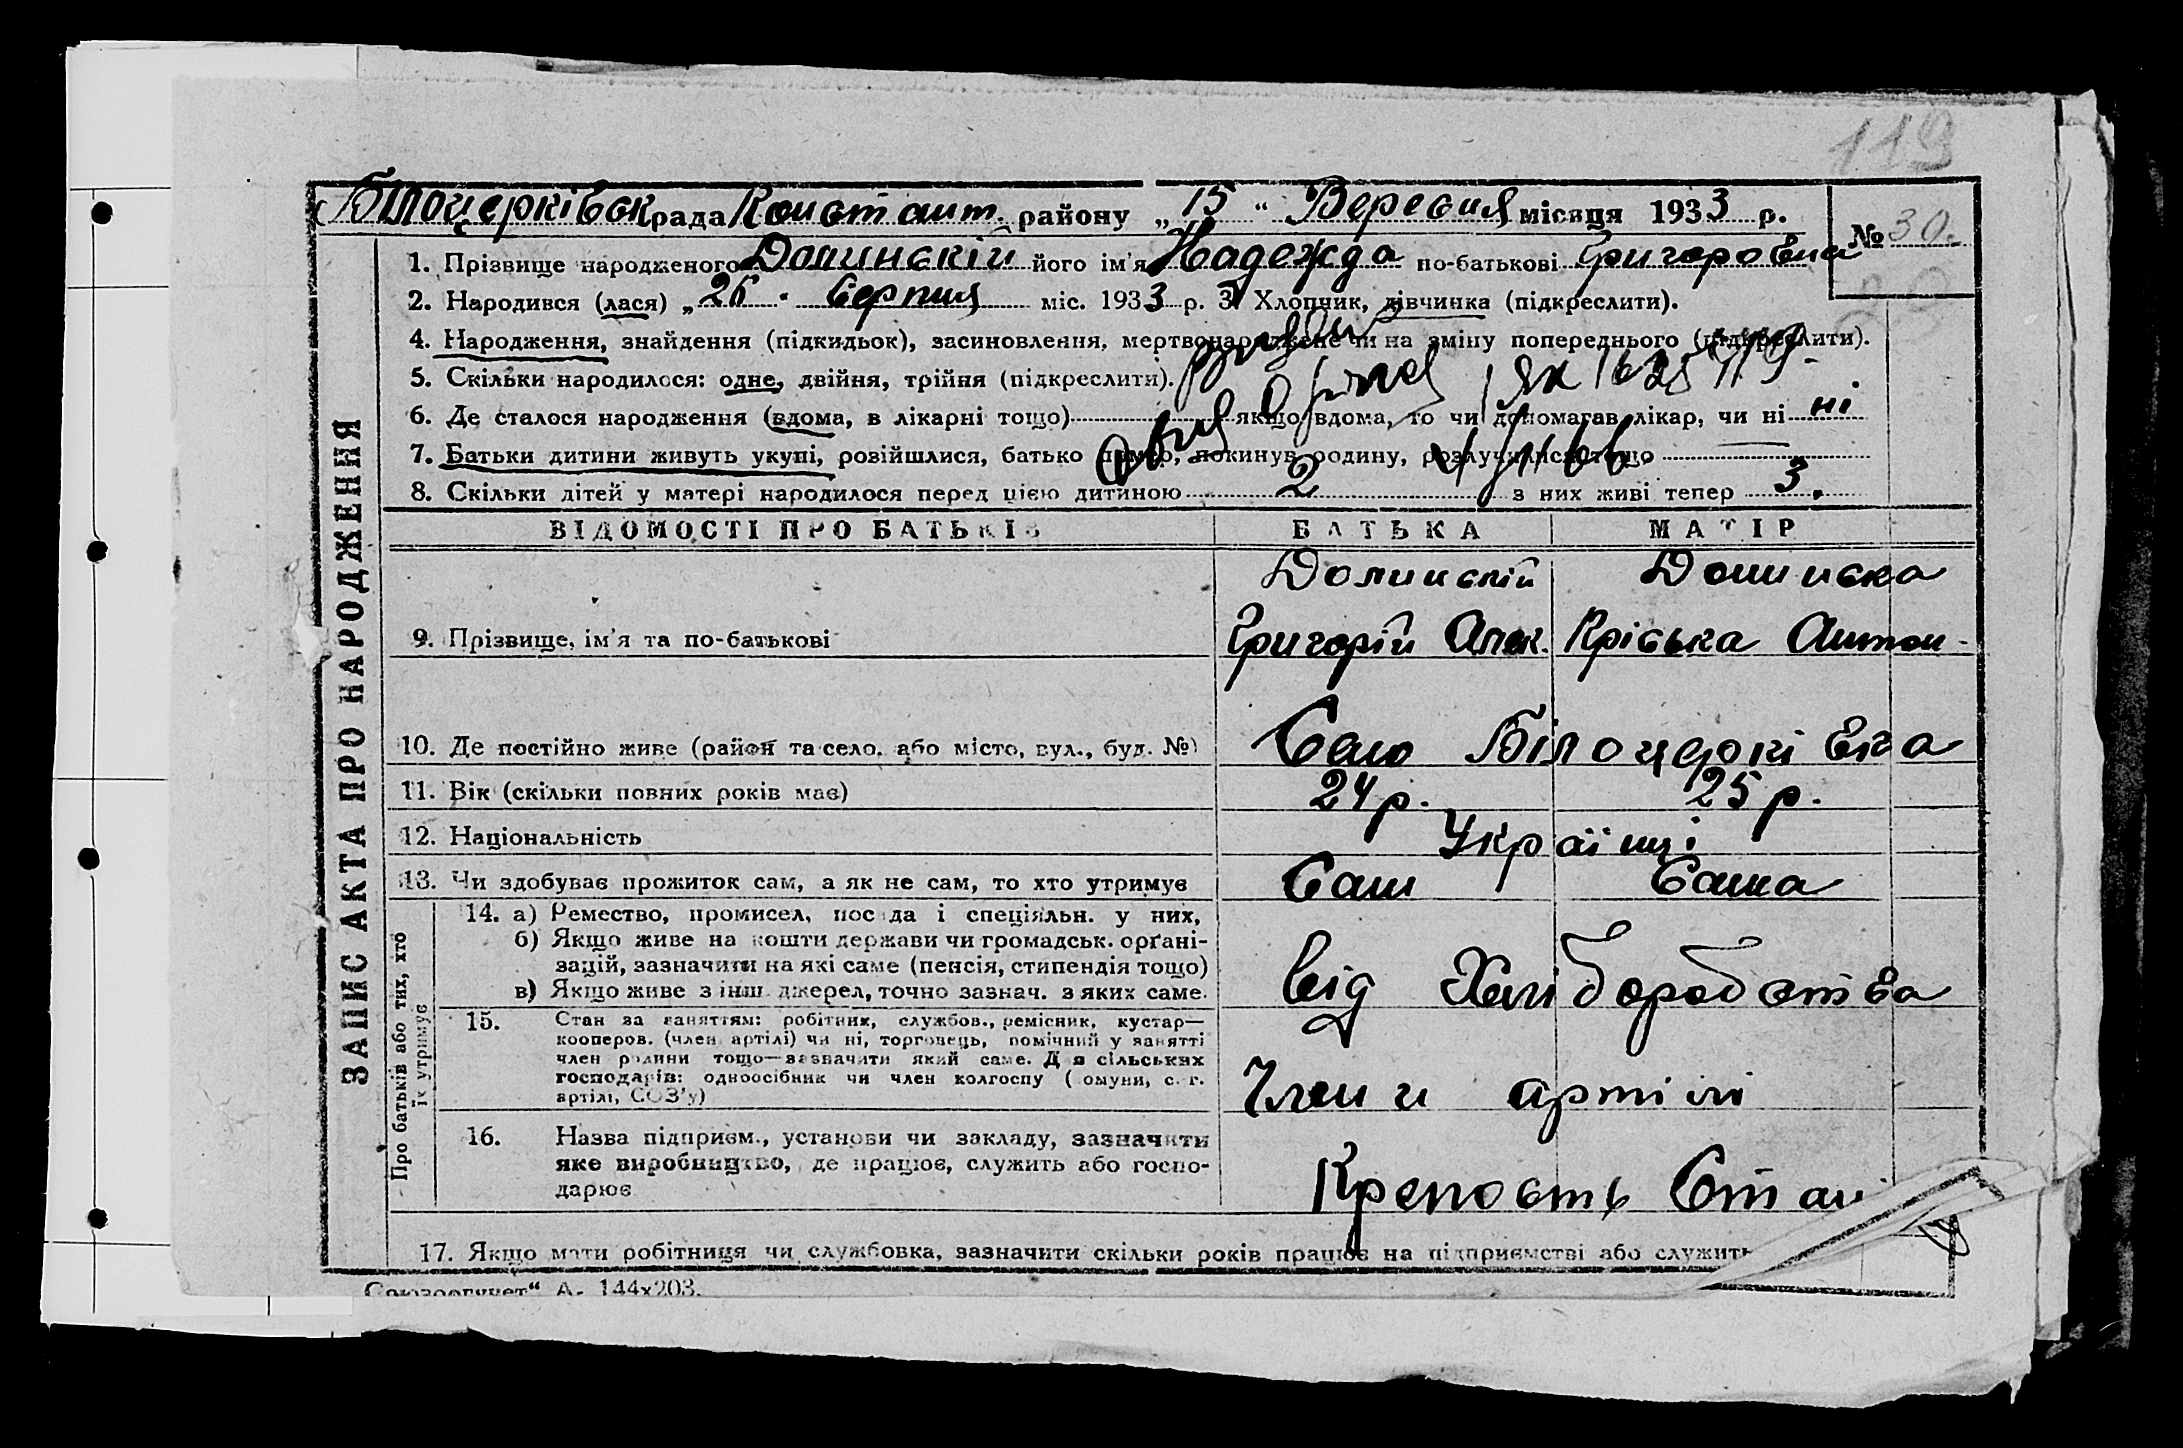 119
Білоцерківськ рада Констант. району „ 15 “ Вересня місяця 1933 р. № 30.
1. Прізвище народженого Долинскій його ім'я Надежда по-батькові Григоровна
2. Народився (лася) „ 26 . Серпня міс. 1933 р. 3 Хлопчик, дівчинка (підкреслити).
4. Народження, знайдення (підкидьок), засиновлення, мертвонароджене чи на зміну попереднього (підкреслити).
5. Скільки народилося: одне, двійня, трійня (підкреслити).
6. Де сталося народження (вдома, в лікарні тощо) якщо вдома, то чи допомагав лікар, чи ні ні
7. Батьки дитини живуть укупі, розвійшлися, батько помер, покинув родину, розлучилися тощо
8. Скільки дітей у матері народилося перед цією дитиною 2 з них живі тепер 3.
ЗАПИС АКТА ПРО НАРОДЖЕННЯ
ВІДОМОСТІ ПРО БАТЬКІВ БАТЬКА МАТІР
Долинскій Долинска
9. Прізвище, ім'я та по-батькові Григорій Алек. Кріська Антон-
10. Де постійно живе (район та село, або місто, вул., буд. №) Село Білоцерківка
11. Вік (скільки повних років має) 24 р. 25 р.
12. Національність Українці
13. Чи здобуває прожиток сам, а як не сам, то хто утримує Сам Сама
Про батьків або тих, хто їх утримує
14. а) Ремество, промисел, посада і спеціяльн. у них,
б) Якщо живе на кошти держави чи громадськ. орґані-
зацій, зазначити на які саме (пенсія, стипендія тощо)
в) Якщо живе з інш. джерел, точно зазнач. з яких саме.
від Хліборобства
15. Стан за заняттям: робітник, службов., ремісник, кустар—
кооперов. (член артілі) чи ні, торговець, помічний у занятті
член родини тощо—зазначити який саме. Для сільських
господарів: одноосібник чи член колгоспу (комуни, с.-г.
артілі, СОЗ'у)
Члени артілі
16. Назва підприєм., установи чи закладу, зазначити
яке виробництво, де працює, служить або госпо-
дарює
Крепость
17. Якщо мати робітниця чи службовка, зазначити скільки років працює на підприємстві або служить
Союзоргучет“ А- 144х203.